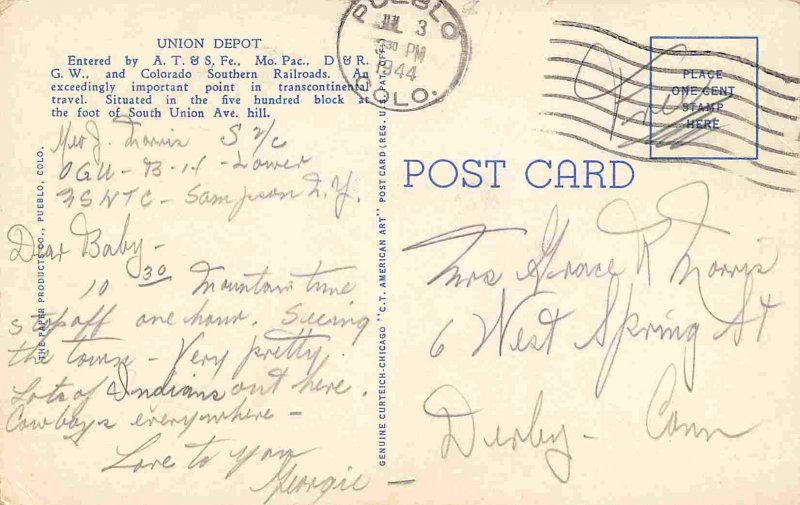 UNION DEPOT
Entered by A. T. & S, Fe., Mo. Pac., D & R.
G. W., and Colorado Southern Railroads. An
exceedingly important point in transcontinental
travel. Situated in the five hundred block at
the foot of South Union Ave. hill.
Geo J. Morris S 2/c
OGU - B-14 - Lower
USNTC - Sampson N.Y.
Dear Baby -
10 30 Mountain time
stop off one hour. Seeing
the town - Very pretty.
Lots of Indians out here.
Cowboys everywhere -
Love to you
Georgie -
THE PAPER PRODUCTS CO., PUEBLO, COLO.
GENUINE CURTEICH-CHICAGO "C.T. AMERICAN ART" POST CARD (REG. U.S. PAT. OFF.)
PUEBLO
JUL 3
30 PM
1944
COLO.
Free
PLACE
ONE CENT
STAMP
HERE
POST CARD
Mrs Grace R Morris
6 West Spring St
Derby - Conn